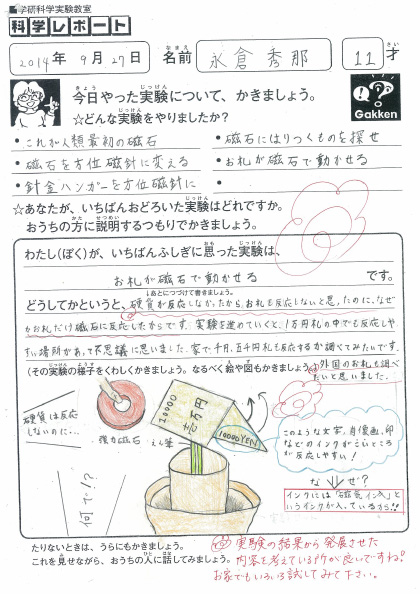 学研科学実験教室
科学レポート
2014年 9月27日 名前 なまえ 永倉秀那 11才
今日やった実験について、かきましょう。
☆どんな実験をやりましたか?
Gakken
・これが人類最初の磁石 ・磁石にはりつくものを探せ
・磁石を方位磁針に変える ・お札が磁石で動かせる
・針金ハンガーを方位磁針に ・
☆あなたが、いちばんおどろいた実験はどれですか。
おうちの方に説明するつもりでかきましょう。
わたし(ぼく)が、いちばんふしぎに思った実験は、
お札が磁石で動かせる です。
↓あとにつづけて書きましょう。
どうしてかというと、硬貨が反応しなかったから、お札も反応しないと思ったのに、なぜ
かお札だけ磁石に反応したからです。実験を進めていくと、1万円札の中でも反応しや
すい場所があって不思議に思いました。家で、千円、五千円札も反応するか調べてみたいです。
(その実験の様子をくわしくかきましょう。なるべく絵や図もかきましょう。)
外国のお札も調べ
たいと思いました。
硬貨は反応
しないのに…
強力磁石
えん筆
10000
壱万円
10000YEN
何で!?
このような文字、肖像画、印
などのインクがこいところ
が反応しやすい!
なぜ?
インクには「磁気インク」と
いうインクが入っているから!!
たりないときは、うらにもかきましょう。
これを見せながら、おうちの人に話してみましょう。
実験の結果から発展させた
内容を考えている所が良いですね。
お家でもいろいろ試してみて下さい。